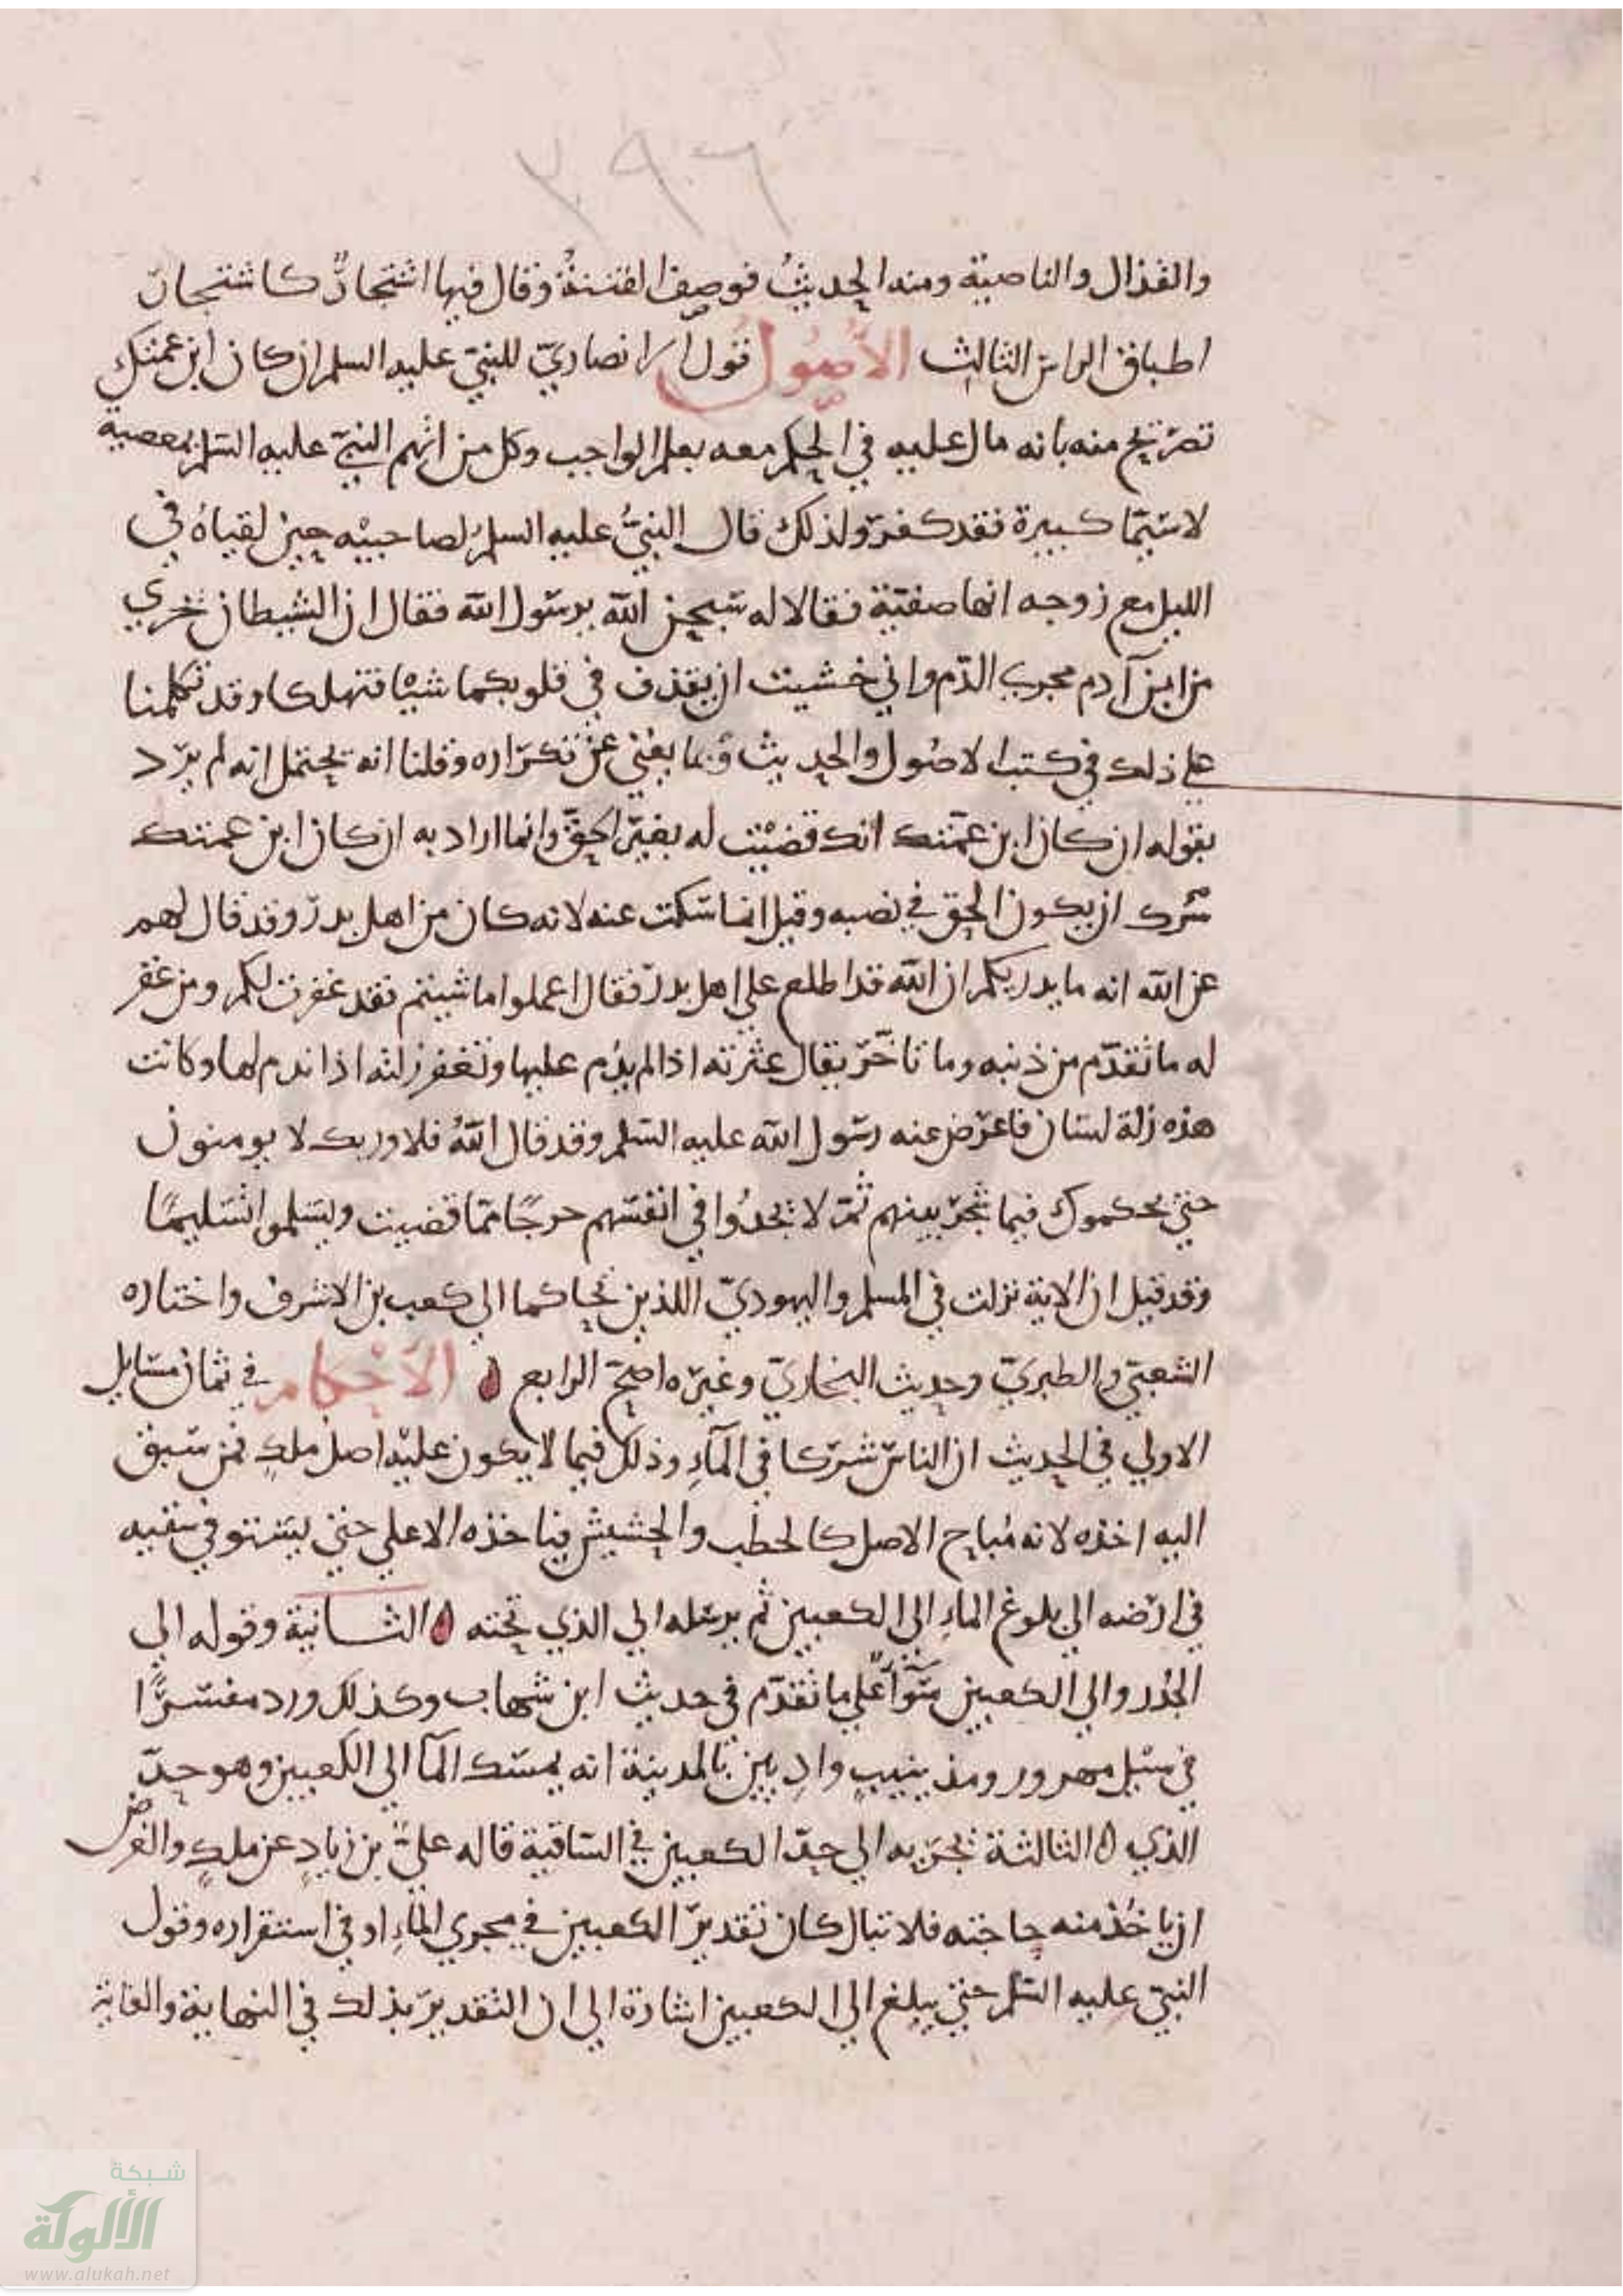 ٢٩٦
والقذال والناصية ومنه الحديث فوصف الفتنة وقال فيها اشتجارٌ كاشتجار
اطباق الراس الثالث الأصُول قول الانصاريّ للنبيّ عليه السلم ان كان ابن عمتك
تصريح منه بانه مال عليه في الحكم معه بعلم الواجب وكل من اتهم النبيّ عليه السلم بمعصية
لاسيّما كبيرة فقد كفر ولذلك قال النبيُّ عليه السلم لصاحبيْه حين لقياهُ في
الليل مع زوجه انها صفيّة فقالا له سبحن الله يرسول الله فقال ان الشيطان يجري
من ابن آدم مجرى الدّم واني خشيت ان يقذف في قلوبكما شيْا فتهلكا وقد تكلمنا
على ذلك في كتب الاصُول والحديث بما يغني عن تكراره وقلنا انه يحتمل انه لم يرد
بقوله ان كان ابن عمّتك انك قضيْت له بغير الحقّ وانما اراد به ان كان ابن عمتك
سرك ان يكون الحق في نصبه وقيل انما سكت عنه لانه كان من اهل بدر وقد قال لهم
عن الله انه ما يدريكم ان الله قد اطلع على اهل بدر فقال اعملوا ما شيتم فقد غفرت لكم ومن غفر
له ما تقدّم من ذنبه وما تاخّر يقال عثرته اذا لم يدُم عليها وتغفر زلته اذا ندم لها وكانت
هذه زلة لسان فاعرض عنه رسول الله عليه السلم وقد قال اللهُ فلا وربك لا يومنون
حتى يحكموك فيما شجر بينهم ثمّ لا يجدُوا في انفسهم حرجًا ممّا قضيت ويسلموا تسليمًا
وقد قيل ان الاية نزلت في المسلم واليهوديّ اللذين تحاكما الى كعب بن الاشرف واختاره
الشعبيّ والطبريّ وحديث البخاريّ وغيره اصحّ الرابع ه الأحْكام في ثمان مسايل
الاولى في الحديث ان الناس شركا في المآءِ وذلك فيما لا يكون عليْه اصل ملكٍ فمن سبق
اليه اخذه لانه مُباح الاصل كالحطب والحشيش فياخذه الاعلى حتى يستوفي سقيه
في ارضه الى بلوغ الماءِ الى الكعبين ثم يرسله الى الذي تحته ه الثانية وقوله الى
الجُدر والى الكعبين سَوآءٌ على ما تقدّم في حديث ابن شهاب وكذلك ورد مفسّرًا
في سيْل مهرور ومذينيبٍ واديين بالمدينة انه يمسك المآ الى الكعبين وهو حدّ
الذي ه الثالثة يجريه الى حدّ الكعبين في الساقية قاله عليُّ بن زيادٍ عن ملكٍ والغرض
ان ياخُذ منه حاجته فلا تبال كان تقدير الكعبين في مجرى الماءِ او في استقراره وقول
النبيّ عليه السلم حتى يبلغ الى الكعبين اشارة الى ان التقدير بذلك في النهاية والغاية
شبكة
الألوكة
www.alukah.net